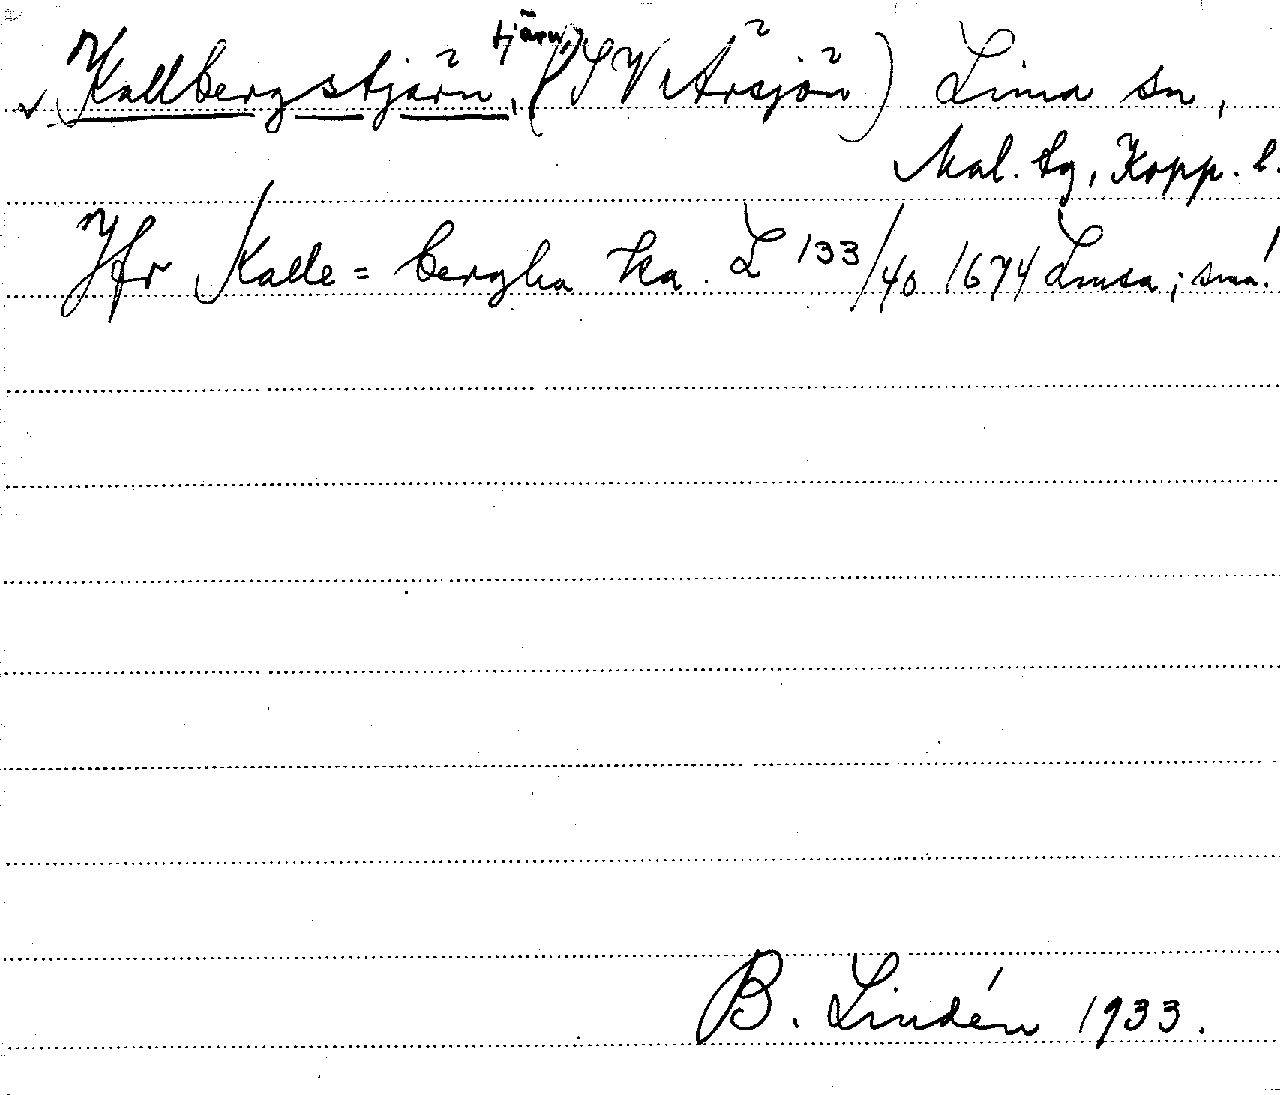 Kallbergstjärn, tjärn, (SV Årsjön) Lima sn,
Mal. tg, Kopp. l.
Jfr Kalle = bergha ka. L 133/40 1674 Limsa; små!
B. Lindén 1933.